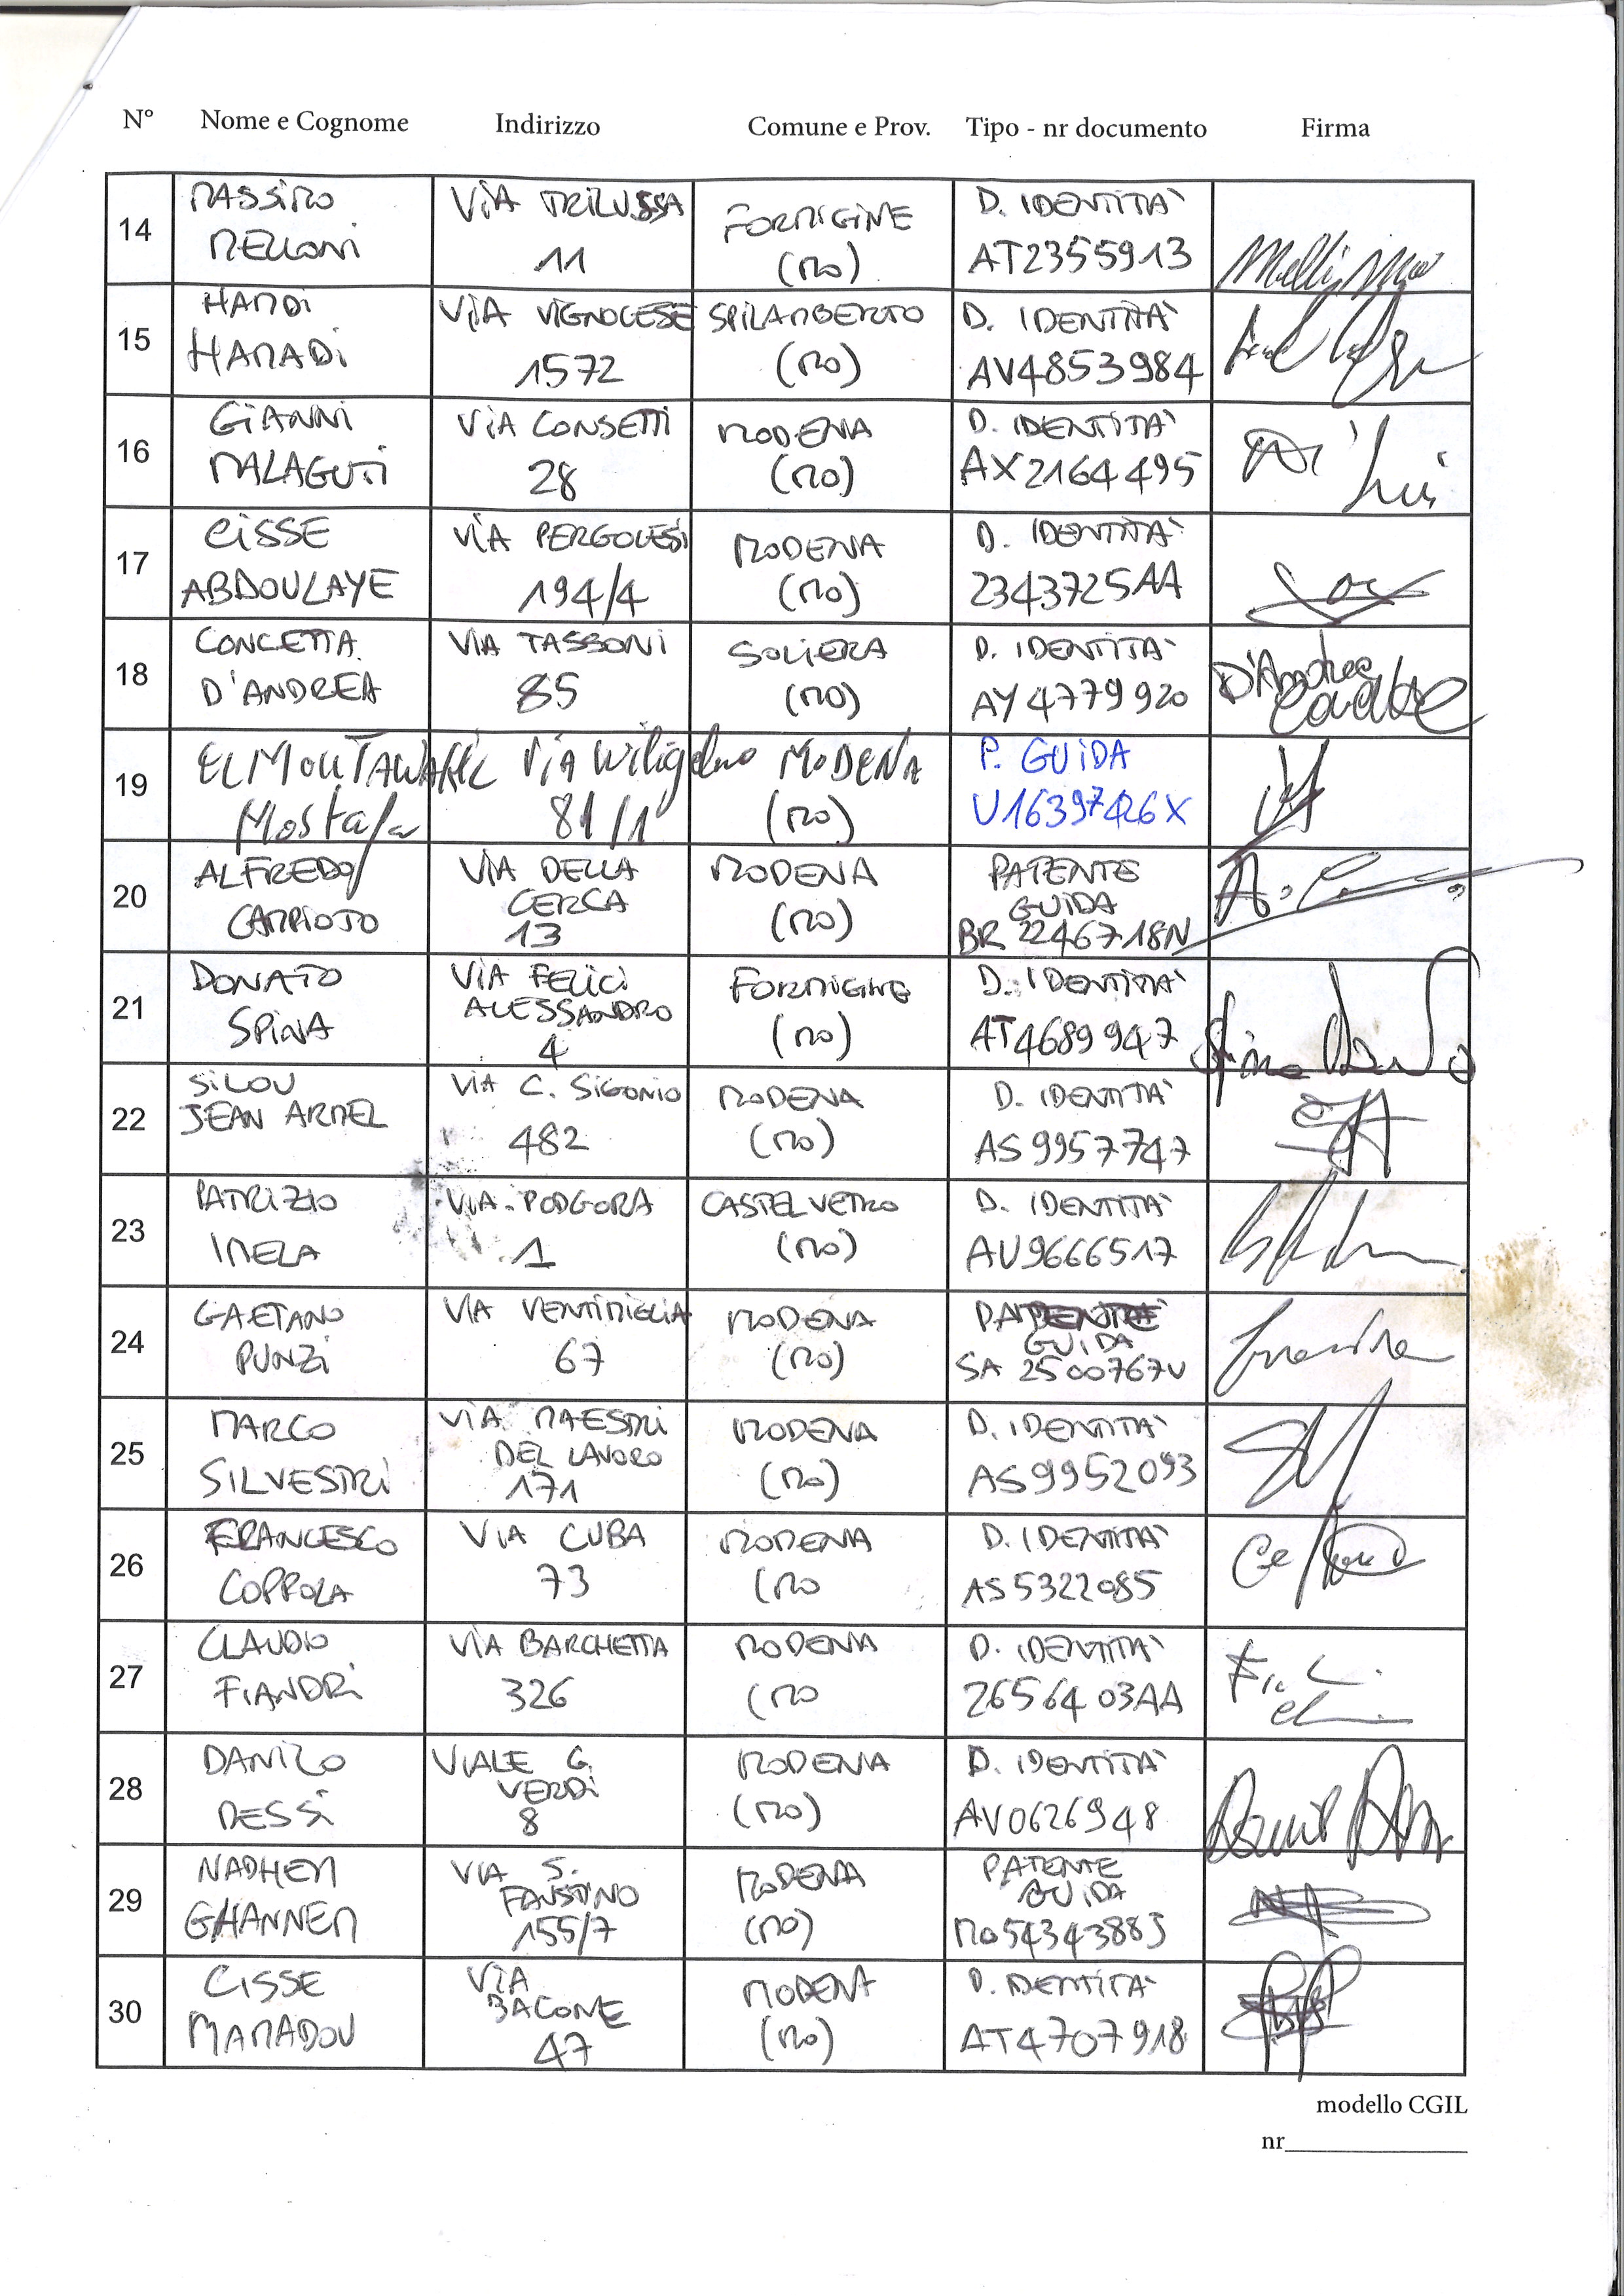 N° Nome e Cognome Indirizzo Comune e Prov. Tipo - nr documento Firma
14 MASSIMO VIA TRILUSSA FORMIGINE D. IDENTITÀ
MELLONI 11 (MO) AT2355913
15 HAMDI VIA VIGNOLESE SPILAMBERTO D. IDENTITÀ
HAMADI 1572 (MO) AV4853984
16 GIANNI VIA CONSETTI MODENA D. IDENTITÀ
MALAGUTI 28 (MO) AX2164495
17 CISSE VIA PERGOLESI MODENA D. IDENTITÀ
ABDOULAYE 194/4 (MO) 2343725AA
18 CONCETTA VIA TASSONI SOLIERA D. IDENTITÀ D'Andrea
D'ANDREA 85 (MO) AY4779920
19 EL MOUTAWAKIL VIA Wiligelmo MODENA P. GUIDA
Mostafa 81/1 (MO) U16397426X
20 ALFREDO VIA DELLA MODENA PATENTE
CERCA GUIDA
CAMPIOTO 13 (MO) BR 2246718N
21 DONATO VIA FELICI FORMIGINE D. IDENTITÀ
SPINA ALESSANDRO (MO) AT4689947
4
22 SILOU VIA C. SIGONIO MODENA D. IDENTITÀ
JEAN ARMEL 482 (MO) AS9957747
23 PATRIZIO VIA PODGORA CASTELVETRO D. IDENTITÀ
IMELA 1 (MO) AU9666517
24 GAETANO VIA VENTIMIGLIA MODENA PATENTE
GUIDA
PUNZI 67 (MO) SA 2500767U
25 MARCO VIA MAESTRI MODENA D. IDENTITÀ
DEL LAVORO
SILVESTRI 171 (MO) AS9952093
26 FRANCESCO VIA CUBA MODENA D. IDENTITÀ
COPPOLA 73 (MO AS5322085
27 CLAUDIO VIA BARCHETTA MODENA D. IDENTITÀ
FIANDRI 326 (MO 2656403AA
28 DANILO VIALE G. MODENA D. IDENTITÀ
VERDI
DESSI 8 (MO) AV0626948
29 NADHEM VIA S. MODENA PATENTE
FAUSTINO GUIDA
GHANNEM 155/7 (MO) MO5434388J
30 CISSE VIA MODENA D. IDENTITÀ
BACONE
MAMADOU 47 (MO) AT4707918
modello CGIL
nr